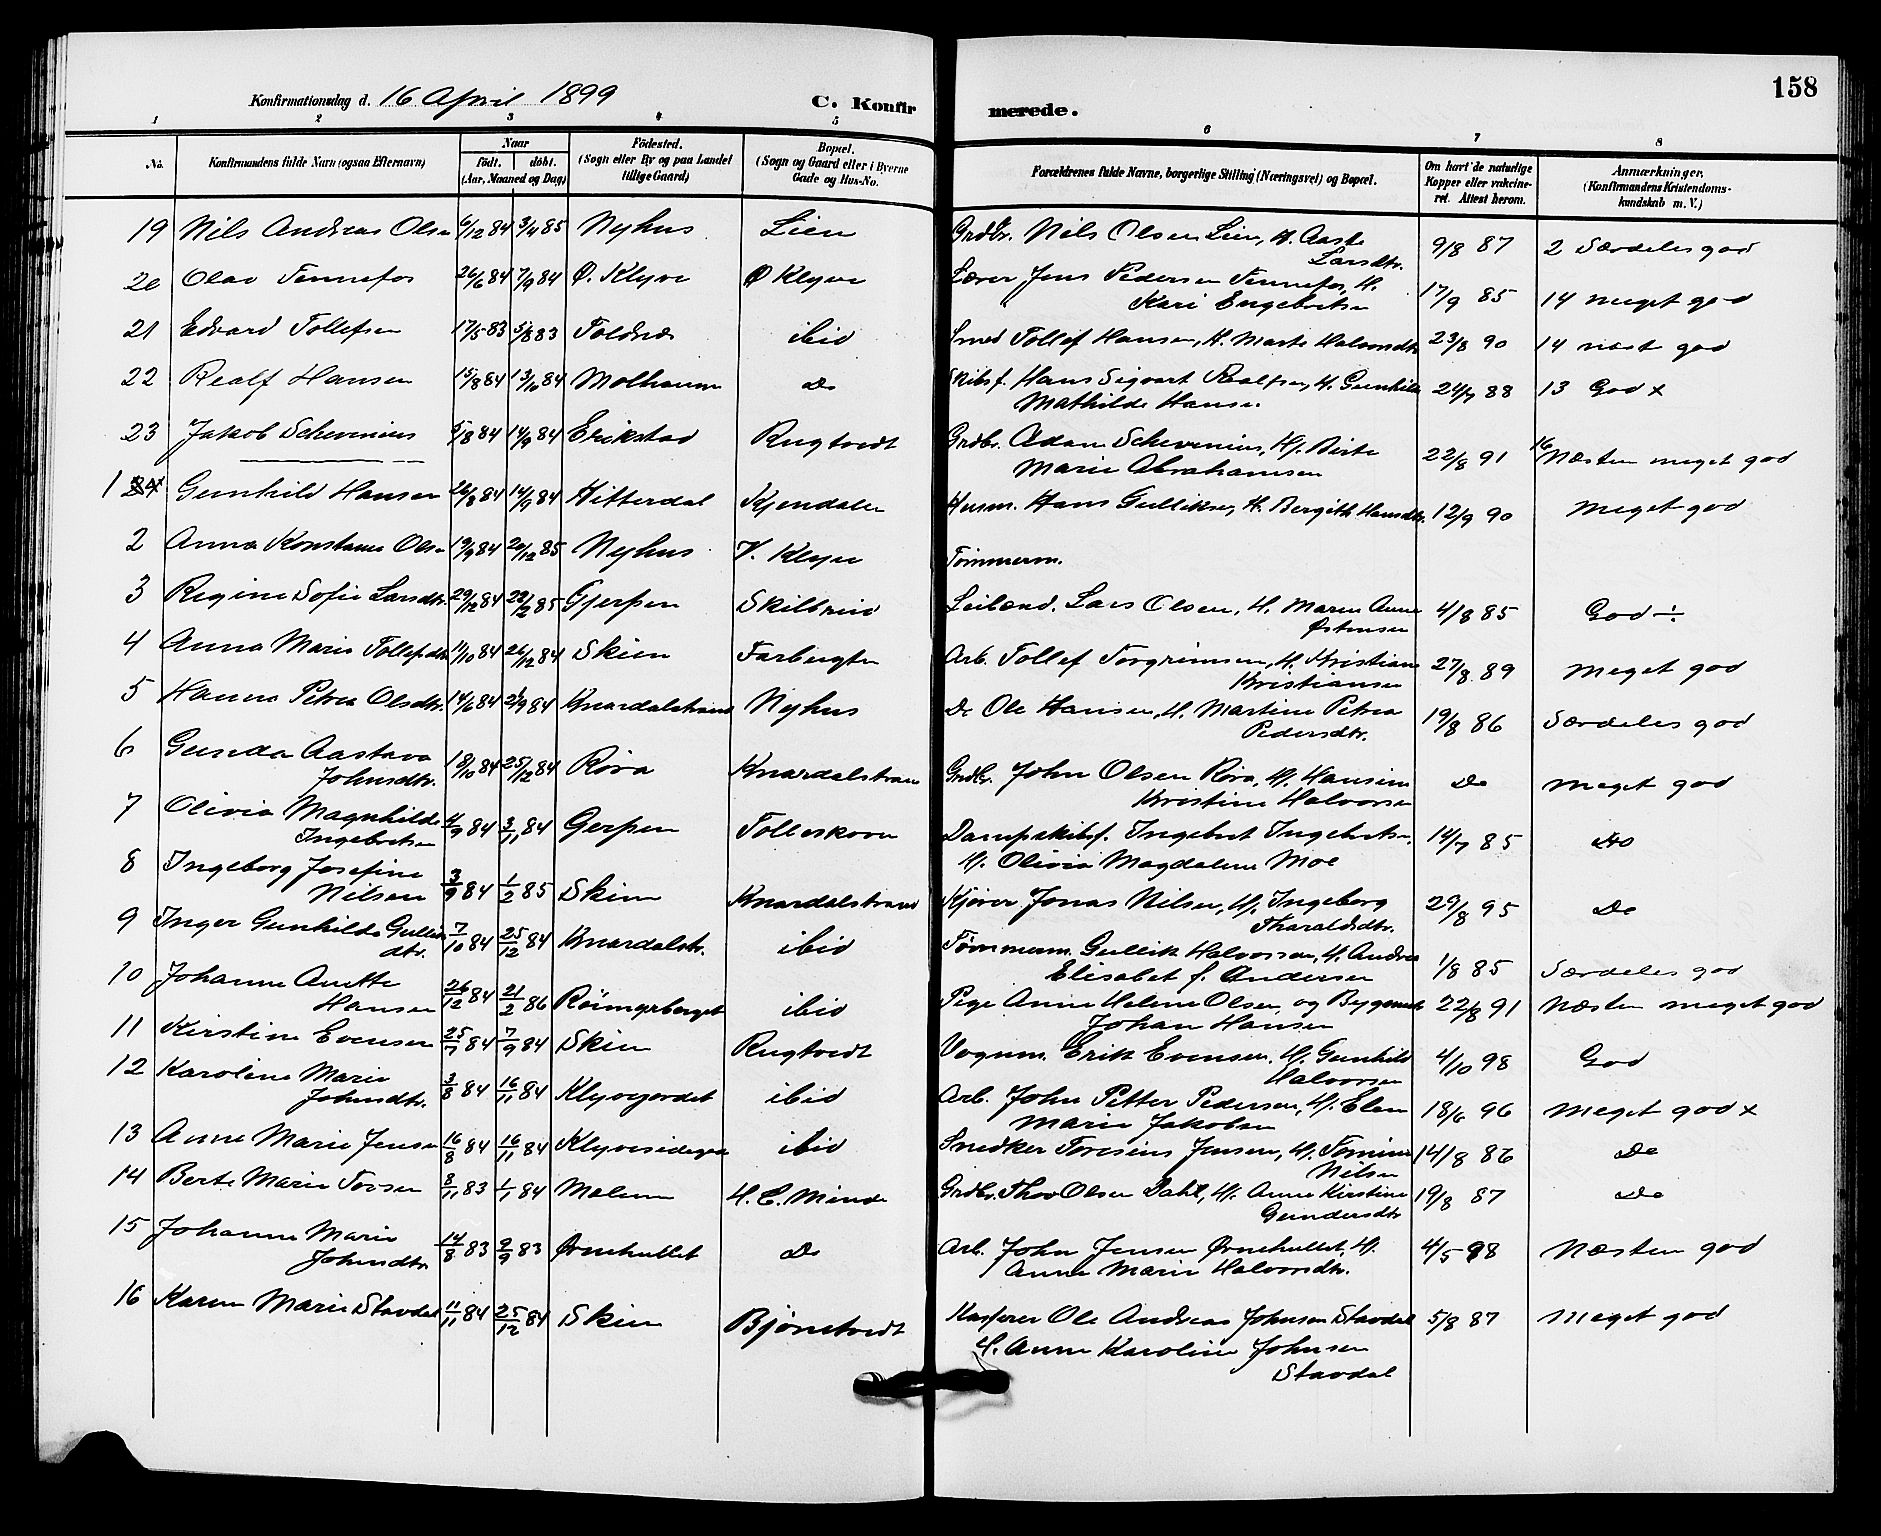 158
Konfirmationsdag d. 16 April 1899
C. Konfirmerede.
1 2 3 4 5 6 7 8
No. Konfirmandens fulde Navn (ogsaa Efternavn) Naar födt. döbt. (Aar, Maaned og Dag) Födested. (Sogn eller By og paa Landet tillige Gaard) Bopæl. (Sogn og Gaard eller i Byerne Gade og Hus-No. Forældrenes fulde Navne, borgerlige Stilling (Næringsvei) og Bopæl. Om havt de naturlige Kopper eller vakcineret. Attest herom. Anmærkninger. (Konfirmandens Kristendomskundskab m. V.)
19 Nils Andreas Olsen 6/12 84 3/4 85 Nyhus Lien Grdbr. Nils Olsen Lien, H. Aaste Larsdtr. 9/8 87 2 Særdeles god
20 Olav Tennefos 26/6 84 7/9 84 Ø. Klyve Ø Klyve Lærer Jens Pedersen Tennefos, H. Kari Engebretsen 17/9 85 14 meget god
21 Edvard Tollefsen 17/5 83 5/8 83 Foldnes ibid Smed Tollef Hansen, H. Marte Halvorsdtr 23/8 90 14 næst god
22 Realf Hansen 15/8 84 13/10 84 Molhaven Do Skibsf. Hans Sigvart Realfsen, H. Gunhild Mathilde Hansen 24/7 88 13 God x
23 Jakob Schevenius 5/8 84 14/9 84 Erikstad Rugtvedt Grdbr. Adam Schevenius, H. Birte Marie Abrahamsen 22/8 91 16 Næsten meget god
1 24 Gunhild Hansen 26/8 84 14/9 84 Hitterdal Kjendalen Husm. Hans Gulliksen, H. Bergith Hansdtr. 12/9 90 meget god
2 Anna Konstanse Olsen 19/9 84 20/12 85 Nyhus V. Klyve Tømmerm.
3 Regine Sofie Larsdtr. 29/12 84 22/2 85 Gjerpen Skilbreid Leilænd. Lars Olsen, H. Maren Anne Østensen 4/8 85 God ÷
4 Anna Marie Tollefsdtr 11/10 84 26/12 84 Skien Farbugten Arb. Tollef Torgrimsen, H. Kristiane Kristiansen 27/8 89 meget god
5 Hanna Petrea Olsdtr. 14/6 84 21/9 84 Knardalstrand Nyhus Do Ole Hansen, H. Martine Petrea Pedersdtr. 19/8 86 Særdeles god
6 Gunda Aastava Johnsdtr. 18/10 84 25/12 84 Røra Knardalstrand Grdbr. John Olsen Røra, H. Hansine Kristine Halvorsen Do meget god
7 Olivia Magnhilde Ingebretsen 4/9 84 3/11 84 Gerpen Tolleskoven Dampskibsf. Ingebret Ingebretsen, H. Olivia Magdalene Moe 14/7 85 Do
8 Ingeborg Josefine Nilsen 3/9 84 1/2 85 Skien Knardalstrand Kjører Jonas Nilsen, H. Ingeborg Tharaldsdtr. 29/8 95 Do
9 Inger Gunhilde Gulliksdtr. 7/10 84 25/12 84 Knardalstr. ibid Tømmerm. Gullik Halvorsen, H. Andrea Elisabet f. Andersen 1/8 85 Særdeles god
10 Johanne Anette Hansen 26/12 84 21/2 86 Röimyrberget ibid Pige Anne Helene Olsen og Bygsm Johan Hansen 22/8 91 Næsten meget god
11 Kirstine Evensen 25/7 84 7/9 84 Skien Rugtvedt Vognm. Erik Evensen, H. Gunhild Halvorsen 4/10 98 God
12 Karoline Marie Johnsdtr. 3/8 84 16/11 84 Klyvejordet ibid Arb. John Petter Pedersen, H. Elen Marie Jakobsen 18/6 96 Meget god x
13 Anne Marie Jensen 16/8 84 16/11 84 Klyvesidegrn ibid Snedker Toresius Jensen, H. Tomine Nilsen 14/8 86 Do
14 Berte Marie Torsen 3/11 83 1/1 84 Moleen H. E. Minde Grdbr. Thor Olsen Dahl, H. Anne Kirstine Gundersdtr 19/8 87 Do
15 Johanne Marie Johnsdtr. 14/8 83 9/9 83 Ørnehullet Do Arb. John Jensen Ørnehullet, H. Anne Marie Halvorsdtr. 4/5 98 Næsten god
16 Karen Marie Stavdal 11/11 84 25/12 84 Skien Bjöntvedt Kasserer Ole Andreas Johnsen Stavdal H. Anne Karoline Johnsen Stavdal 5/8 87 Meget god